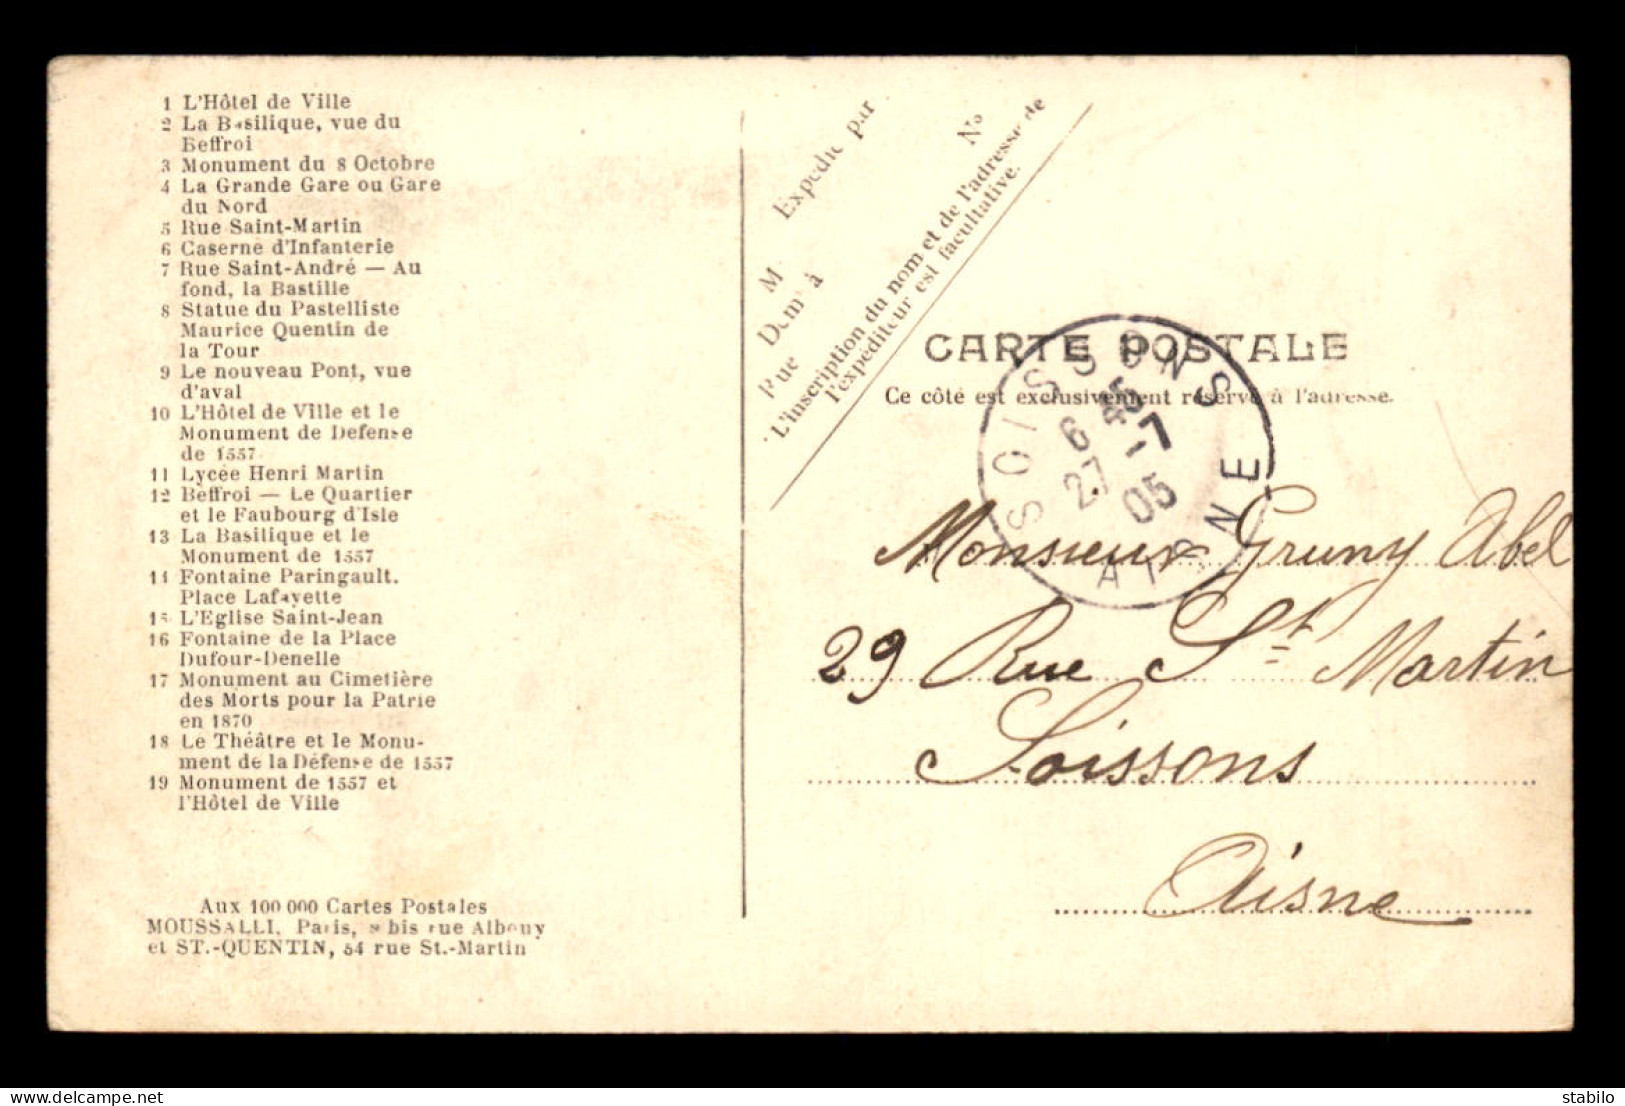 1 L'Hôtel de Ville
2 La Basilique, vue du
Beffroi
3 Monument du 8 Octobre
4 La Grande Gare ou Gare
du Nord
5 Rue Saint-Martin
6 Caserne d'Infanterie
7 Rue Saint-André — Au
fond, la Bastille
8 Statue du Pastelliste
Maurice Quentin de
la Tour
9 Le nouveau Pont, vue
d'aval
10 L'Hôtel de Ville et le
Monument de Defense
de 1557
11 Lycée Henri Martin
12 Beffroi — Le Quartier
et le Faubourg d'Isle
13 La Basilique et le
Monument de 1557
14 Fontaine Paringault.
Place Lafayette
15 L'Eglise Saint-Jean
16 Fontaine de la Place
Dufour-Denelle
17 Monument au Cimetière
des Morts pour la Patrie
en 1870
18 Le Théâtre et le Monu-
ment de la Défense de 1557
19 Monument de 1557 et
l'Hôtel de Ville
Aux 100 000 Cartes Postales
MOUSSALLI, Paris, 8 bis rue Albouy
et ST.-QUENTIN, 54 rue St.-Martin
Expédié par
M
Demt à
Rue
No
L'inscription du nom et de l'adresse de
l'expéditeur est facultative.
CARTE POSTALE
Ce côté est exclusivement réservé à l'adresse.
SOISSONS
27 1
05
AISNE
Monsieur Gruny Abel
29 Rue St Martin
Soissons
Aisne
delcampe.net
stabilo